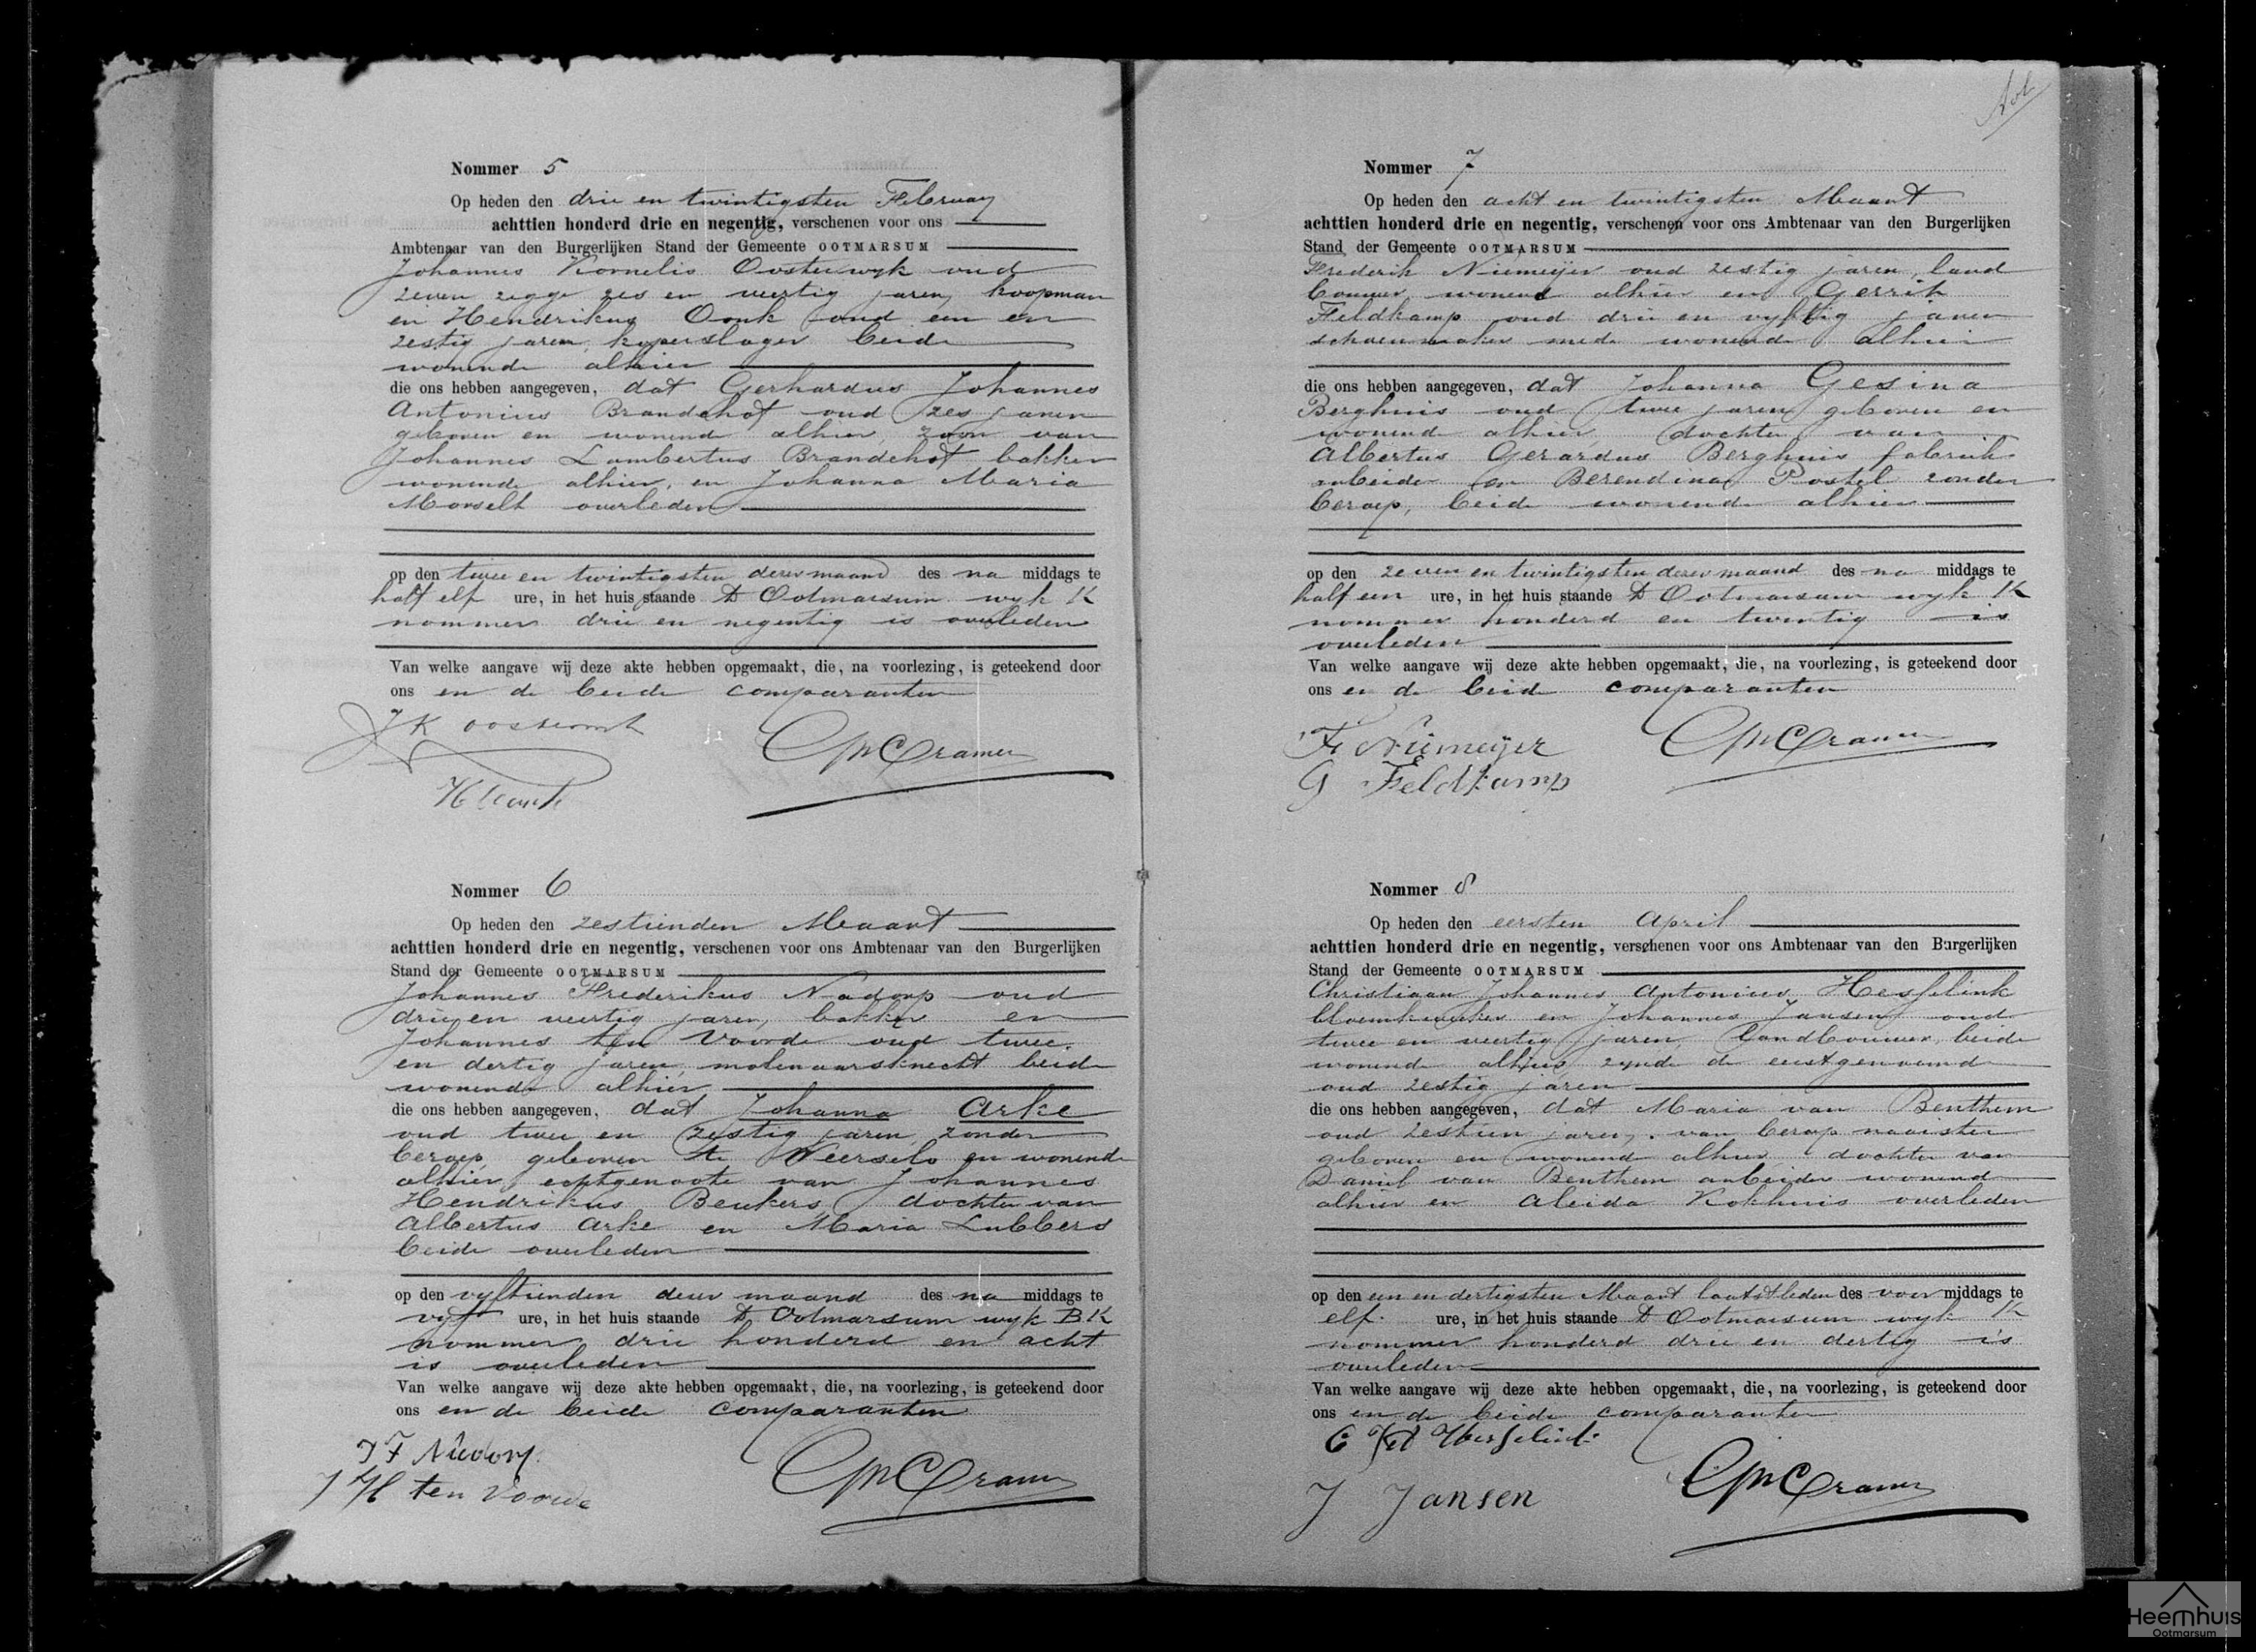 Nommer 5
Op heden den drie en twintigsten February
achttien honderd drie en negentig, verschenen voor ons
Ambtenaar van den Burgerlijken Stand der Gemeente OOTMARSUM
Johannes Kornelis Oosterwyk oud
zeven zegge zes en veertig jaren, koopman
en Hendrikus Oonk oud een en
zestig jaren, koperslager beide
wonende alhier
die ons hebben aangegeven, dat Gerhardus Johannes
Antonius Brandehof oud zes jaren
geboren en wonende alhier, zoon van
Johannes Lambertus Brandehof bakker
wonende alhier, en Johanna Maria
Morselt overleden
op den twee en twintigsten dezer maand des na middags te
half elf ure, in het huis staande te Ootmarsum wyk K
nommer drie en negentig is overleden
Van welke aangave wij deze akte hebben opgemaakt, die, na voorlezing, is geteekend door
ons en de beide comparanten
J K
Cramer
Nommer 6
Op heden den zestienden Maart
achttien honderd drie en negentig, verschenen voor ons Ambtenaar van den Burgerlijken
Stand der Gemeente OOTMARSUM
Johannes Frederikus Nadorp oud
drie en veertig jaren, bakker en
Johannes ten Voorde oud twee
en dertig jaren, molenaarsknecht beide
wonende alhier
die ons hebben aangegeven, dat Johanna Arke
oud twee en zestig jaren, zonder
beroep, geboren te Weerselo en wonende
alhier, echtgenoote van Johannes
Hendrikus Beukers, dochter van
Albertus Arke en Maria Lubbers
beide overleden
op den vyftienden dezer maand des na middags te
vyf ure, in het huis staande te Ootmarsum wyk B K
nommer drie honderd en acht
is overleden
Van welke aangave wij deze akte hebben opgemaakt, die, na voorlezing, is geteekend door
ons en de beide comparanten
J F
ten Voorde
Cramer
Nommer 7
Op heden den acht en twintigsten Maart
achttien honderd drie en negentig, verschenen voor ons Ambtenaar van den Burgerlijken
Stand der Gemeente OOTMARSUM
Frederik Niemeijer oud zestig jaren, land
bouwer wonend alhier en Gerrit
Feldkamp oud drie en vyftig jaren
schoenmaker mede wonende alhier
die ons hebben aangegeven, dat Johanna Gesina
Berghuis oud twee jaren geboren en
wonende alhier, dochter van
Albertus Gerardus Berghuis fabriek
arbeider en Berendina Postel zonder
beroep, beide wonende alhier
op den zeven en twintigsten dezer maand des na middags te
half een ure, in het huis staande te Ootmarsum wyk K
nommer honderd en twintig is
overleden
Van welke aangave wij deze akte hebben opgemaakt, die, na voorlezing, is geteekend door
ons en de beide comparanten
F Niemeyer
Cramer
G Feldkamp
Nommer 8
Op heden den eersten April
achttien honderd drie en negentig, verschenen voor ons Ambtenaar van den Burgerlijken
Stand der Gemeente OOTMARSUM
Christiaan Johannes Antonius Hesselink
bloemkweeker en Johannes Jansen oud
twee en veertig jaren, landbouwer, beide
wonende alhier, zynde de eerstgenoemde
oud zestig jaren
die ons hebben aangegeven, dat Maria van Benthem
oud zestien jaren, van beroep naaister
geboren en wonend alhier, dochter van
Daniel van Benthem arbeider wonend
alhier en Aleida Kokhuis overleden
op den een en dertigsten Maart laatstleden des voor middags te
elf ure, in het huis staande te Ootmarsum wyk K
nommer honderd drie en dertig is
overleden
Van welke aangave wij deze akte hebben opgemaakt, die, na voorlezing, is geteekend door
ons en de beide comparanten
Hesselink
J Jansen
Cramer
Heemhuis
Ootmarsum